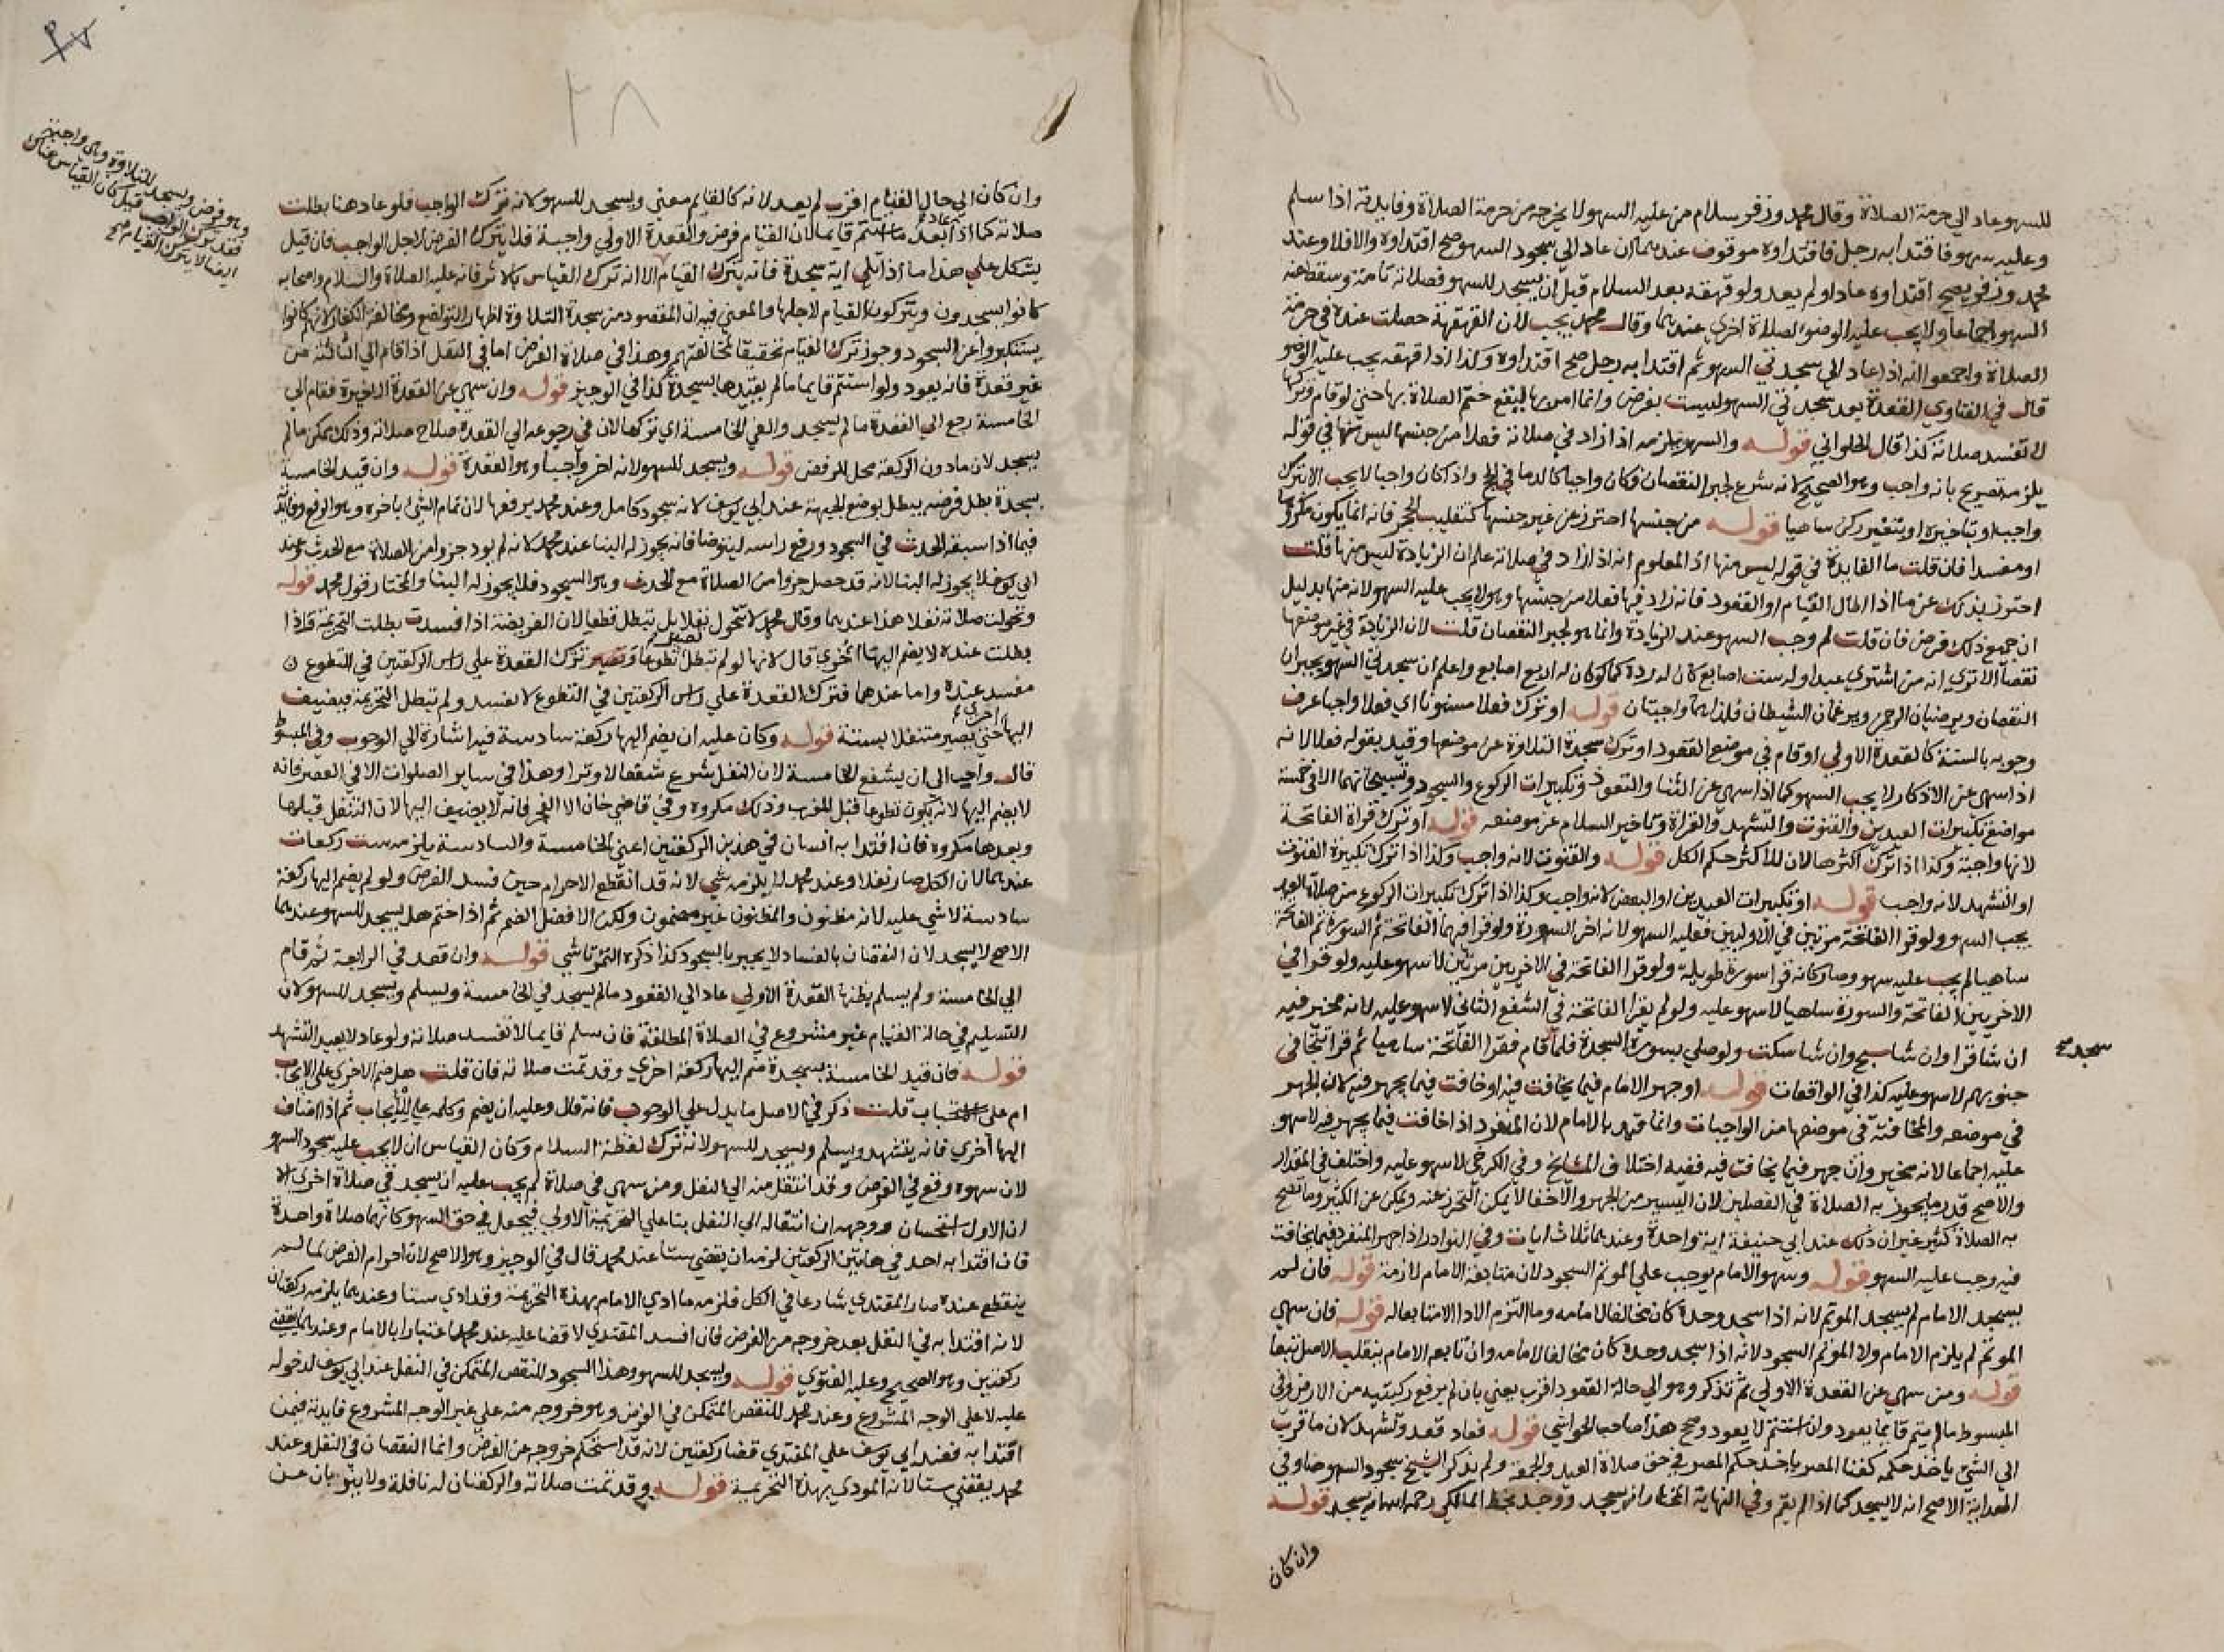 للسهو عاد الي حرمة الصلاة وقال محمد وزفر سلام من عليه السهو لا يخرجه من حرمة الصلاة وفايدته اذا سلم
وعليه سهو فاقتدا به رجل فاقتداوه موقوف عندهما ان عاد الي سجود السهو صح اقتداوه والا فلا وعند
محمد وزفر يصح اقتداوه عاد او لم يعد ولو قهقه بعد السلام قبل ان يسجد للسهو فصلاته تامة وسقط عنه
السهو اجماعا ولا يجب عليه الوضو لصلاة اخري عندهما وقال محمد يجب لان القهقهة حصلت عنده في حرمة
الصلاة واجمعوا انه اذا عاد الي سجدتي السهو ثم اقتدا به رجل صح اقتداوه وكذا اذا قهقه يجب عليه الوضو
قال في الفتاوي القعدة بعد سجدتي السهو ليست بفرض وانما امر بها ليقع ختم الصلاة بها حتي لو قام وتركها
لا تفسد صلاته كذا قال الحلواني قوله والسهو يلزمه اذا زاد في صلاته فعلا من جنسها ليس منها في قوله
يلزمه تصريح بانه واجب وهو الصحيح لانه شرع لجبر النقصان فكان واجبا كالدما في الحج واذا كان واجبا لا يجب الا بترك
واجب او بتاخيره او بتغير ركن ساهيا قوله من جنسها احترز عن غير جنسها كتقليب الحجر فانه انما يكون مكروها
او مفسدا فان قلت ما الفايدة في قوله ليس منها اذ المعلوم انه اذا زاد في صلاته علم ان الزيادة ليس منها قلت
احترز بذلك عن ما اذا اطال القيام او القعود فانه زاد فيها فعلا من جنسها وهو لا يجب عليه السهو لانه منها بدليل
ان جميع ذلك فرض فان قلت لم وجب السهو عند الزيادة وانما هو لجبر النقصان قلت لان الزيادة في غير موضعها
نقصا الا تري انه من اشتري عبدا وله ست اصابع كان له رده كما لو كان له اربع اصابع واعلم ان سجدتي السهو يجبران
النقصان ويرضيان الرحمن ويرغمان الشيطان فلذا هما واجبتان قوله او ترك فعلا مسنونا اي فعلا واجبا عرف
وجوبه بالسنة كالقعدة الاولي او قام في موضع القعود او ترك سجدة التلاوة عن موضعها وقيد بقوله فعلا لانه
اذا سهي عن الاذكار لا يجب السهو كما اذا سهي عن الثنا والتعوذ وتكبيرات الركوع والسجود وتسبيحاتهما الا في خمسة
مواضع تكبيرات العيدين والقنوت والتشهد والقراة وتاخير السلام عن موضعه قوله او ترك قراة الفاتحة
لانها واجبة وكذا اذا ترك اكثرها لان للاكثر حكم الكل قوله والقنوت لانه واجب وكذا اذا ترك تكبيرة القنوت
او التشهد لانه واجب قوله او تكبيرات العيدين او البعض لانه واجب وكذا اذا ترك تكبيرات الركوع من صلاة العيد
يجب السهو ولو قرا الفاتحة مرتين في الاوليين فعليه السهو لانه اخر السورة ولو قرا فيهما الفاتحة ثم السورة ثم الفاتحة
ساهيا لم يجب عليه سهو وصار كانه قرا سورة طويلة ولو قرا الفاتحة في الاخريين مرتين لا سهو عليه ولو قرا في
الاخريين الفاتحة والسورة ساهيا لا سهو عليه ولو لم يقرا الفاتحة في الشفع الثاني لا سهو عليه لانه مخير فيه
ان شا قرا وان شا سبح وان شا سكت ولو صلي بسورة السجدة فلما قام فقرا الفاتحة ساهيا ثم قرا تتجافي
سجد صح
جنوبهم لا سهو عليه كذا في الواقعات قوله او جهر الامام فيما يخافت فيه او خافت فيما يجهر فيه لان الجهر
في موضعه والمخافتة في موضعها من الواجبات وانما قيد بالامام لان المنفرد اذا خافت فيما يجهر فيه لا سهو
عليه اجماعا لانه مخير وان جهر فيما يخافت فيه ففيه اختلاف المشايخ وفي الكرخي لا سهو عليه واختلف في المقدار
والاصح قدر ما يجوز به الصلاة في الفصلين لان اليسير من الجهر والاخفا لا يمكن التحرز عنه ويمكن عن الكثير وما تصح
به الصلاة كثير غير ان ذلك عند ابي حنيفة اية واحدة وعندهما ثلاث ايات وفي النوادر اذا جهر المنفرد فيما يخافت
فيه وجب عليه السهو قوله وسهو الامام يوجب علي الموتم السجود لان متابعة الامام لازمة قوله فان لم
يسجد الامام لم يسجد الموتم لانه اذا سجد وحده كان مخالفا لامامه وما التزم الادا الا متابعا له قوله فان سهي
الموتم لم يلزم الامام ولا الموتم السجود لانه اذا سجد وحده كان مخالفا لامامه وان تابعه الامام ينقلب الاصل تبعا
قوله ومن سهي عن القعدة الاولي ثم تذكر وهو الي حالة القعود اقرب يعني بان لم يرفع ركبتيه من الارض وفي
المبسوط ما لم يتم قايما يعود وان استتم لا يعود وصح هذا صاحب الحواشي قوله فعاد قعد وتشهد لان ما قرب
الي الشي ياخذ حكمه كفنا المصر ياخذ حكم المصر في حق صلاة العيد والجمعة ولم يذكر الشيخ سجود السهو هنا وفي
الهداية الاصح انه لا يسجد كما اذا لم يقم وفي النهاية المختار انه يسجد ووجد بخط المالكي رحمه الله انه يسجد قوله
وان كان
وان كان الي حال القيام اقرب لم يعد لانه كالقايم معني ويسجد للسهو لانه ترك الواجب فلو عاد هنا بطلت
صلاته كما اذا عاد بعد ما استتم قايما لان القيام فرض والقعدة الاولي واجبة فلا يترك الفرض لاجل الواجب فان قيل
يشكل علي هذا ما اذا تلي اية سجدة فانه يترك القيام الا انه ترك القياس بالاثر فانه عليه الصلاة والسلام واصحابه
كانوا يسجدون ويتركون القيام لاجلها والمعني فيه ان المقصود من سجدة التلاوة اظهار التواضع ومخالفة الكفار لانهم كانوا
يستكبروا عن السجود وجوز ترك القيام تحقيقا لمخالفتهم وهذا في صلاة الفرض اما في النفل اذا قام الي الثالثة من
غير قعدة فانه يعود ولو استتم قايما ما لم يقيدها بسجدة كذا في الوجيز قوله وان سهي عن القعدة الاخيرة فقام الي
الخامسة رجع الي القعدة ما لم يسجد والغي الخامسة اي تركها لان في رجوعه الي القعدة صلاح صلاته وذلك ممكن ما لم
يسجد لان ما دون الركعة محل للرفض قوله ويسجد للسهو لانه اخر واجبا وهو القعدة قوله وان قيد الخامسة
بسجدة بطل فرضه يبطل بوضع الجبهة عند ابي يوسف لانه سجود كامل وعند محمد برفعها لان تمام الشي باخره وهو الرفع وفايدته
فيما اذا سبقه الحدث في السجود ورفع راسه ليتوضا فانه يجوز له البنا عند محمد لانه لم يود جزوا من الصلاة مع الحدث وعند
ابي يوسف لا يجوز له البنا لانه قد حصل جزوا من الصلاة مع الحدث وهو السجود فلا يجوز له البنا والمختار قول محمد قوله
وتحولت صلاته نفلا هذا عندهما وقال محمد لا تتحول نفلا بل تبطل قطعا لان الفريضة اذا فسدت بطلت التحريمة واذا
بطلت عنده لا يضم اليها اخري قال لانها لو لم تبطل لصير تطوعا وتصير ترك القعدة علي راس الركعتين في التطوع
مفسد عنده واما عندهما فترك القعدة علي راس الركعتين في التطوع لا تفسد ولم تبطل التحريمة فيضيف
اليها اخري حتي يصير متنفلا بستة قوله وكان عليه ان يضم اليها ركعة سادسة فيه اشارة الي الوجوب وفي المبسوط
قال واحب الي ان يشفع الخامسة لان النفل شرع شفعا لا وترا وهذا في ساير الصلوات الا في العصر فانه
لا يضم اليها لانه يكون تطوعا قبل المغرب وذلك مكروه وفي قاضي خان الا الفجر فانه لا يضيف اليها لان التنفل قبلها
وبعدها مكروه فان اقتدا به انسان في هذين الركعتين اعني الخامسة والسادسة يلزمه ست ركعات
عندهما لان الكل صار نفلا وعند محمد لا يلزمه شي لانه قد انقطع الاحرام حين فسد الفرض ولو لم يضم اليها ركعة
سادسة لا شي عليه لانه مظنون والمظنون غير مضمون ولكن الافضل الضم ثم اذا ختم هل يسجد للسهو عندهما
الاصح لا يسجد لان النقصان بالفساد لا يجبر بالسجود كذا ذكره التمرتاشي قوله وان قعد في الرابعة ثم قام
الي الخامسة ولم يسلم يظنها القعدة الاولي عاد الي القعود ما لم يسجد في الخامسة ويسلم ويسجد للسهو لان
التسليم في حالة القيام غير مشروع في الصلاة المطلقة فان سلم قايما لا تفسد صلاته ولو عاد لا يعيد التشهد
قوله فان قيد الخامسة بسجدة ضم اليها ركعة اخري وقد تمت صلاته فان قلت هل ضم الاخري علي الايجاب
ام علي الاستحباب قلت ذكر في الاصل ما يدل علي الوجوب فانه قال وعليه ان يضم وكلمة علي للايجاب ثم اذا اضاف
اليها اخري فانه يتشهد ويسلم ويسجد للسهو لانه ترك لفظة السلام وكان القياس ان لا يجب عليه سجود السهو
لان سهوه وقع في الفرض وقد انتقل منه الي النفل ومن سهي في صلاة لم يجب عليه ان يسجد في صلاة اخري الا
ان الاول استحسان ووجهه ان انتقاله الي النفل بنا علي التحريمة الاولي فيجعل في حق السهو كانهما صلاة واحدة
فان اقتدا به احد في هاتين الركعتين لزمه ان يقضي ستا عند محمد قال في الوجيز وهو الاصح لان احرام الفرض لما لم
ينقطع عنده صار المقتدي شارعا في الكل فلزمه ما ادي الامام بهذه التحريمة وقد ادي ستا وعندهما يلزمه ركعتان
لانه اقتدا به في النفل بعد خروجه من الفرض فان افسد المقتدي لا قضا عليه عند محمد اعتبارا بالامام وعندهما يقضي
ركعتين وهو الصحيح وعليه الفتوي قوله ويسجد للسهو وهذا السجود للنقص المتمكن في النفل عند ابي يوسف لدخوله
عليه لا علي الوجه المشروع وعند محمد للنقص المتمكن في الفرض وهو خروجه منه علي غير الوجه المشروع فايدته فيمن
اقتدا به فعند ابي يوسف علي المقتدي قضا ركعتين لانه قد استحكم خروجه عن الفرض وانما النقصان في النفل وعند
محمد يقضي ستا لانه المودي بهذه التحريمة قوله وقد تمت صلاته والركعتان له نافلة ولا ينوبان عن
وهو فرض ويسجد للتلاوة وهي واجبة
فقد ترك الفرض قيل كان القياس هناك
ايضا لا يترك القيام صح
٢٨